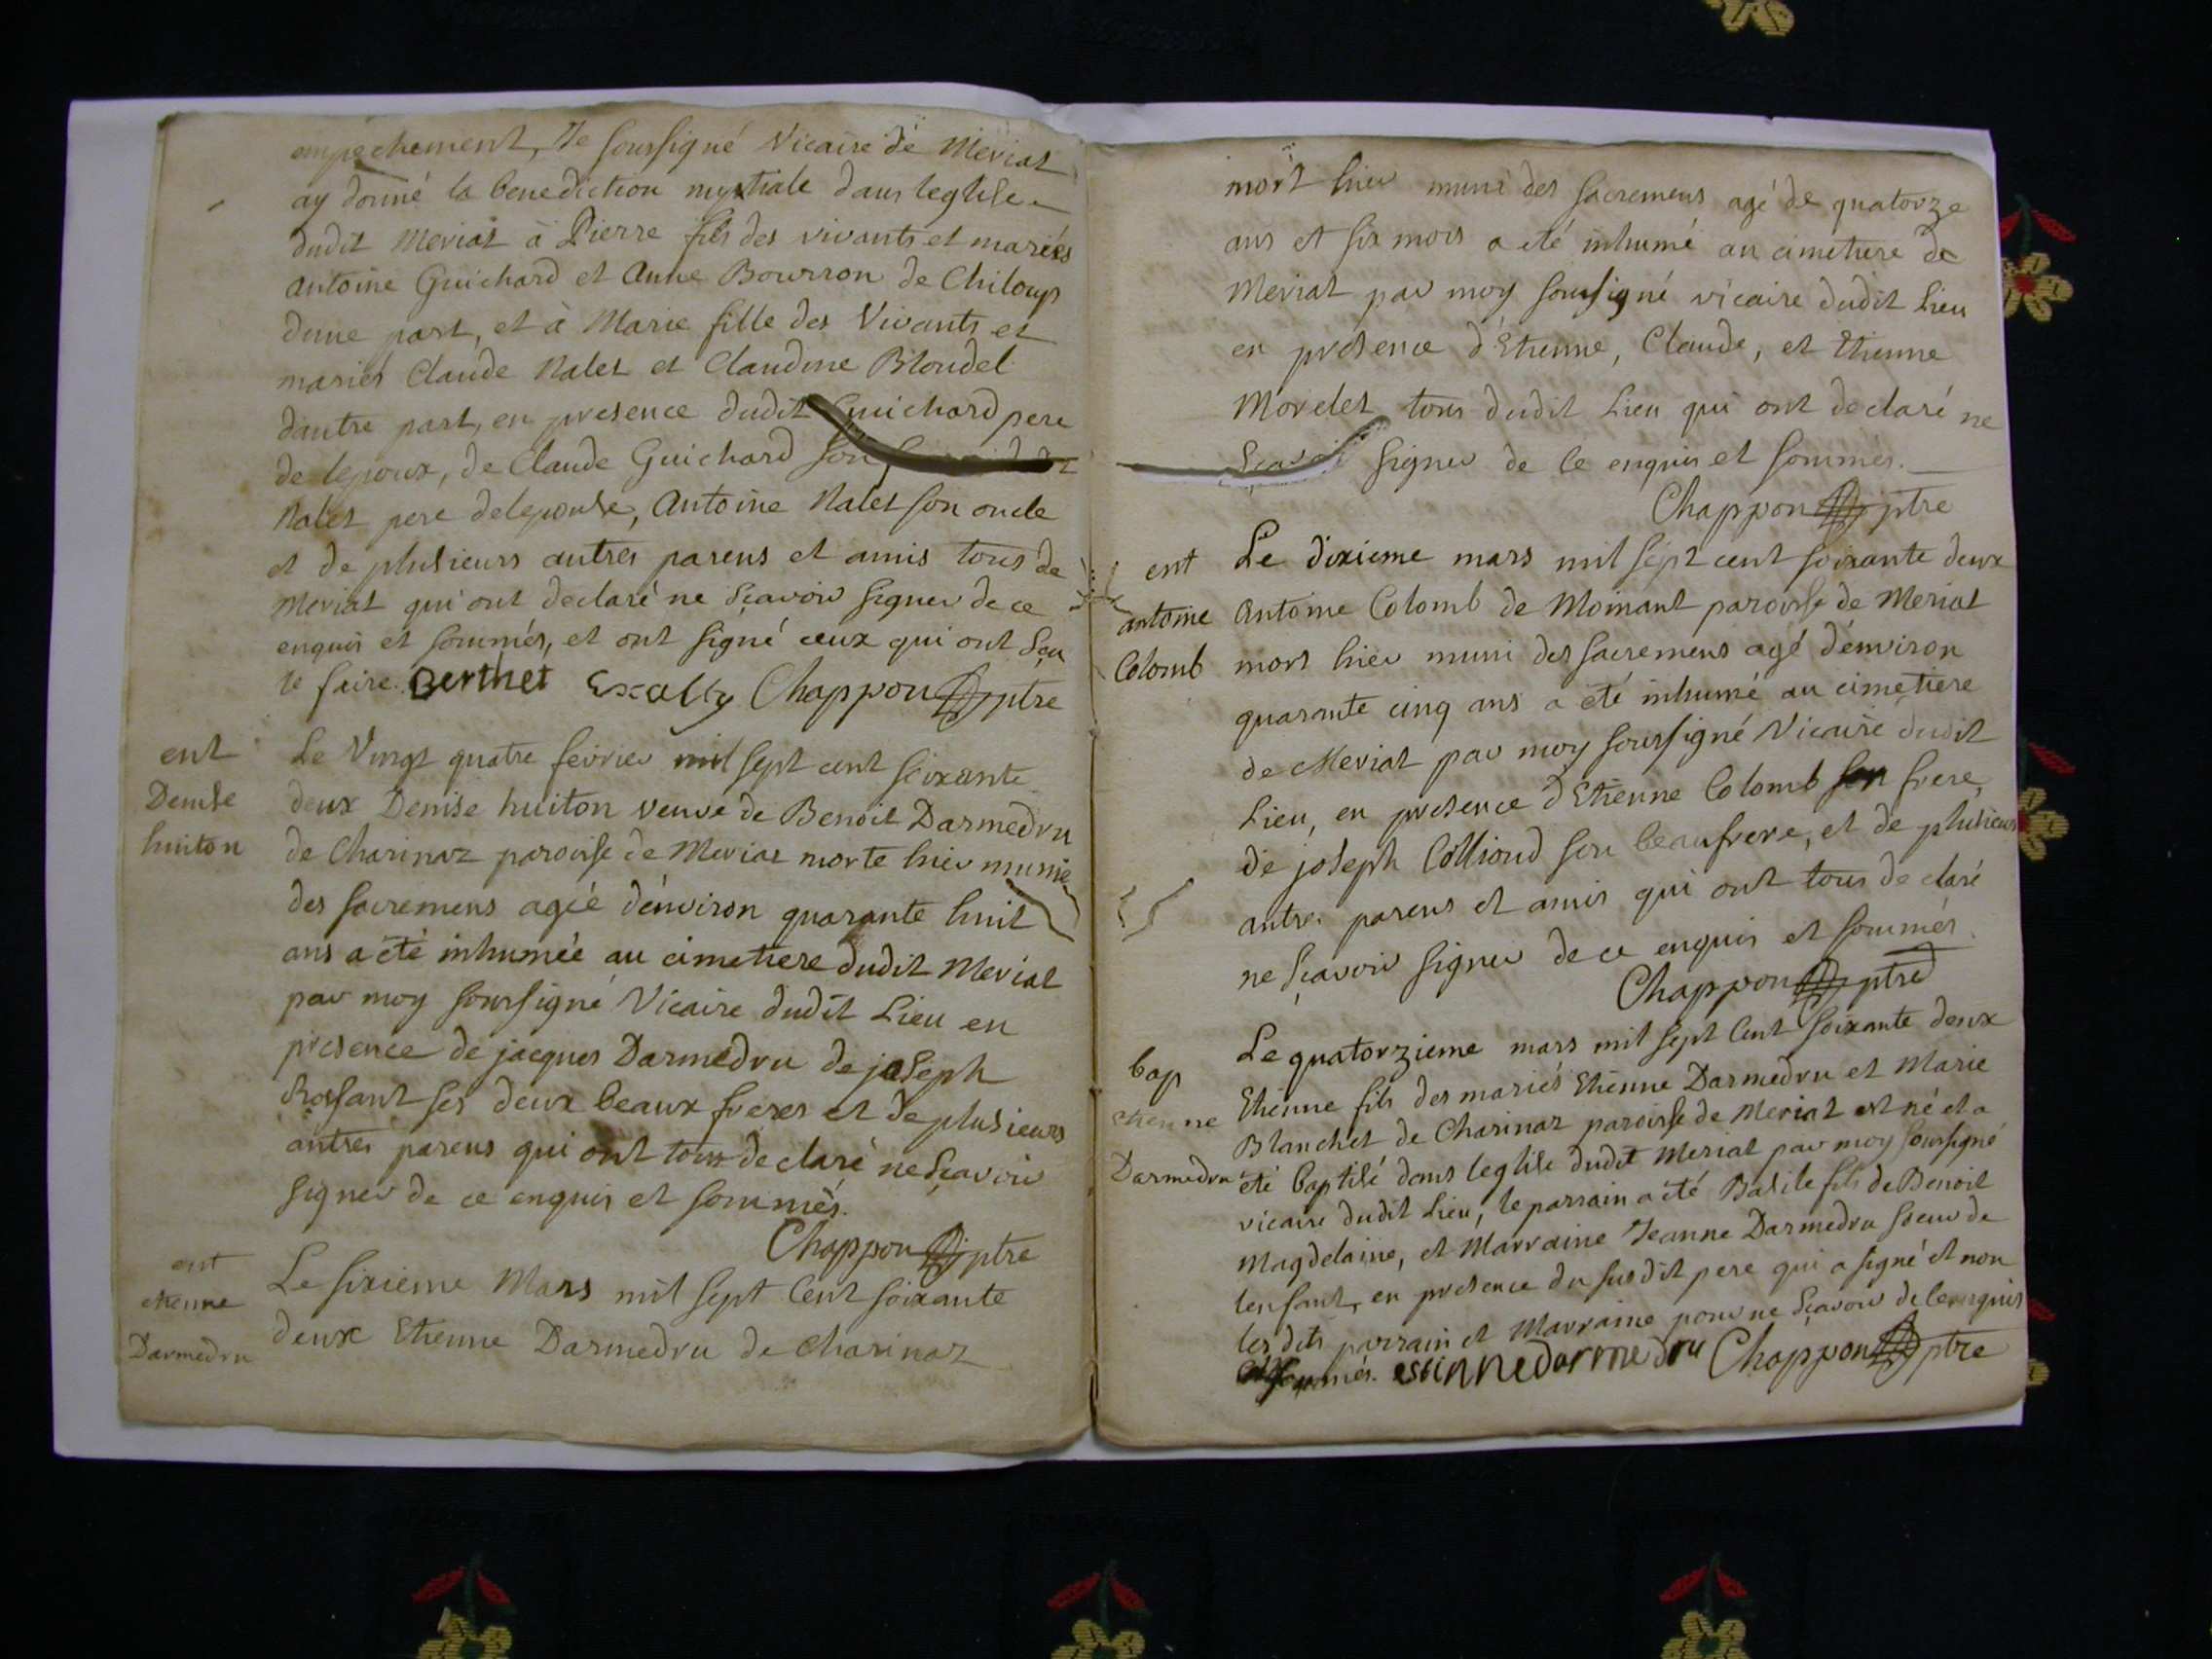 empechement, Je soussigné Vicaire de Meriat
ay donné la benediction nuptiale dans leglise
dudit Meriat à Pierre fils des vivants et mariés
antoine Guichard et Anne Bourron de Chiloup
dune part, et à Marie fille des Vivants et
mariés Claude Nalet et Claudine Blondel
dautre part, en presence dudit Guichard pere
de lepoux, de Claude Guichard son
Nalet pere delepouse, Antoine Nalet son oncle
et de plusieurs autres parens et amis tous de
Meriat qui ont declaré ne sçavoir signer de ce
enquis et sommés, et ont signé ceux qui ont sçu
le faire. Berthet Chappon ptre
ent
Denise
huiton
Le Vingt quatre fevrier mil sept cent soixante
deux Denise huiton veuve de Benoit Darmedru
de Charinaz paroisse de Meriat morte hier munie
des sacremens agée d'environ quarante huit
ans a été inhumée au cimetiere dudit Meriat
par moy soussigné Vicaire dudit Lieu en
presence de jacques Darmedru de joseph
ses deux beaux freres et de plusieurs
autres parens qui ont tous declaré ne sçavoir
signer de ce enquis et sommés.
Chappon ptre
ent
etienne
Darmedru
Le sixieme Mars mil sept Cent soixante
deux Etienne Darmedru de charinaz
mort hier muni des sacremens agé de quatorze
ans et six mois a eté inhumé au cimetiere de
Meriat par moy soussigné vicaire dudit Lieu
en presence d'Etienne, Claude, et Etienne
Morelet tous dudit Lieu qui ont declaré ne
sçavoir signer de ce enquis et sommés.
Chappon ptre
ent
antoine
Colomb
Le dixieme mars mil sept cent soixante deux
Antoine Colomb de Moinant paroisse de Meriat
mort hier muni des sacremens agé d'environ
quarante cinq ans a eté inhumé au cimetiere
de Meriat par moy soussigné Vicaire dudit
Lieu, en presence d'Etienne Colomb son frere,
de joseph Colliond son beaufrere, et de plusieurs
autres parens et amis qui ont tous declaré
ne sçavoir signer de ce enquis et sommés.
Chappon ptre
bap
etienne
Darmedru
Le quatorzieme mars mil sept Cent soixante deux
Etienne fils des mariés Etienne Darmedru et Marie
Blanchet de Charinaz paroisse de Meriat est né et a
eté baptisé dans leglise dudit Meriat par moy soussigné
vicaire dudit Lieu, le parrain a été Basile fils de Benoit
Magdelaine, et Marraine Jeanne Darmedru soeur de
lenfant, en presence du susdit pere qui a signé et non
les dits parrain et Marraine pour ne sçavoir de ce enquis
et sommés. estinne darmedru Chappon ptre